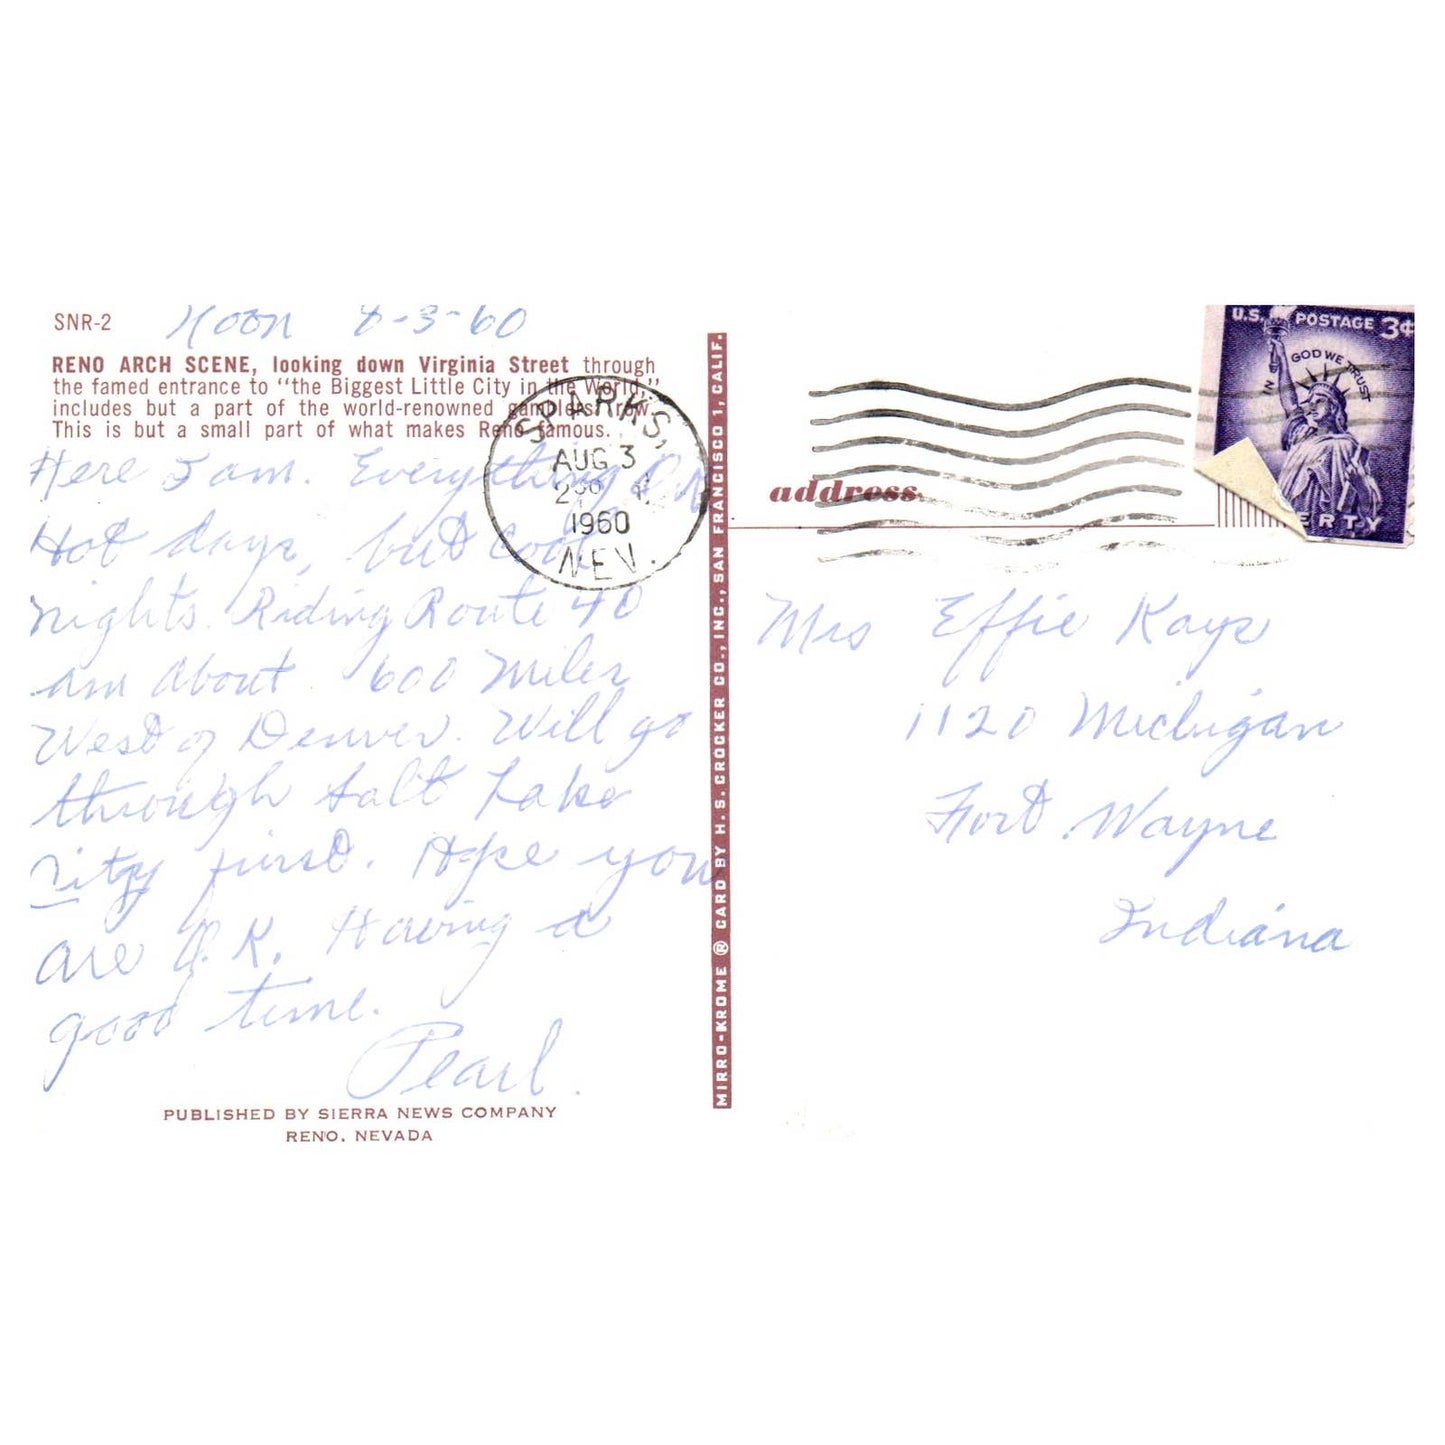 SNR-2 Noon 8-3-60
RENO ARCH SCENE, looking down Virginia Street through
the famed entrance to "the Biggest Little City in the World,"
includes but a part of the world-renowned gamblers' row.
This is but a small part of what makes Reno famous.
Here I am. Everything O.K.
Hot days, but cool
nights. Riding Route 40
am about 600 Miles
West of Denver. Will go
through Salt Lake
City first. Hope you
are O.K. Having a
good time.
Pearl.
PUBLISHED BY SIERRA NEWS COMPANY
RENO, NEVADA
SPARKS,
AUG 3
1960
NEV.
MIRRO-KROME ® CARD BY H. S. CROCKER CO., INC., SAN FRANCISCO 1, CALIF.
address
U.S. POSTAGE 3¢
IN GOD WE TRUST
ERTY
Mrs Effie Kays
1120 Michigan
Fort Wayne
Indiana